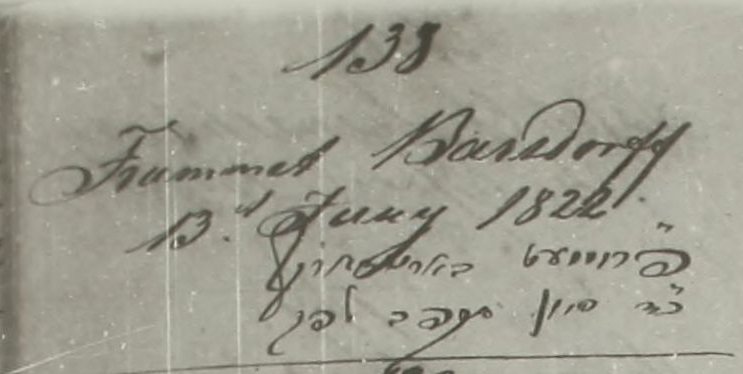 138
Frummet Barsdorff
13.t Juny 1822
פרומעט
כ״ד סיון תקפב לפק